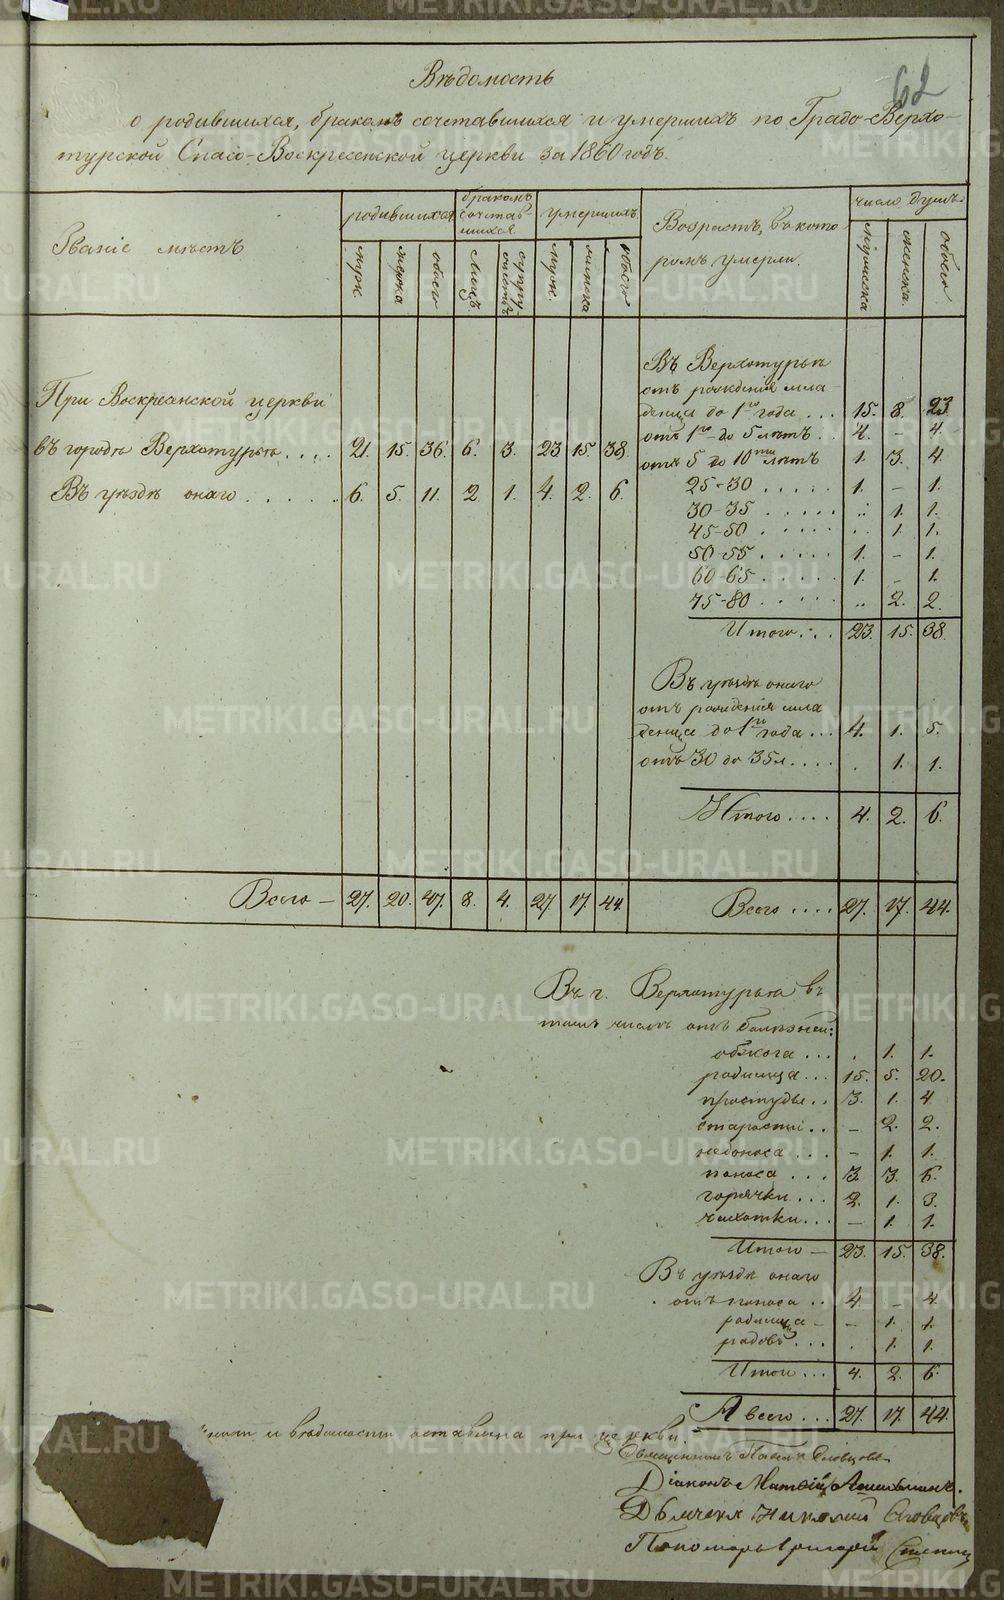 62
Вѣдомость
о родившихся, бракомъ сочетавшихся и умершихъ по Градо-Верхо-
турской Спасо-Воскресенской церкви за 1860 годъ.
Званіе мѣстъ
родившихся
бракомъ сочетав-шихся
умершихъ
Возрастъ, въ кото-
ромъ умерли.
число душъ
муж. женска обоего лицъ супру-жествъ муж. женска обоего мужеска женска. обоего
Въ Верхотурьѣ
отъ рожденія мла-
При Воскресенской церкви
денца до 1го года ... 15. 8. 23.
въ городѣ Верхотурьѣ .... 21. 15. 36. 6. 3. 23 15. 38.
отъ 1го до 5 лѣтъ .. 4. - 4.
отъ 5 до 10ти лѣтъ 1. 3. 4.
Въ уѣздѣ онаго ...... 6. 5. 11. 2. 1. 4. 2. 6.
25-30 ..... 1. - 1.
30-35 ..... .. 1. 1.
45-50 ..... .. 1. 1.
50-55 ..... 1. - 1.
60-65 ..... 1. - 1.
75-80 ..... .. 2. 2.
Итого ... 23. 15. 38.
Въ уѣздѣ онаго
отъ рожденія мла
денца до 1го года ... 4. 1. 5.
отъ 30 до 35 л. .... . 1. 1.
Итого .... 4. 2. 6.
Всего – 27. 20. 47. 8. 4. 27. 17. 44
Всего .... 27. 17. 44.
Въ г. Верхотурьѣ въ
томъ числѣ отъ болѣзней:
обжога ... . 1. 1.
родимца ... 15. 5. 20.
простуды .. 3. 1. 4.
старости .. – 2. 2.
недоноса ... – 1. 1.
поноса ... 3. 3. 6.
горячки ... 2. 1. 3.
чахотки ... – 1. 1.
Итого – 23. 15. 38.
Въ уѣздѣ онаго
отъ поноса .. 4. – 4.
родимца – – 1. 1.
родовъ ... . 1. 1.
Итого ... 4. 2. 6.
А всего ... 27. 17. 44.
и вѣдомости оставлена при церкви
Священникъ Павелъ Словцовъ
Діаконъ Матѳій
Дьячекъ Николай Словцовъ
Пономарь Григорій
METRIKI.GASO-URAL.RU